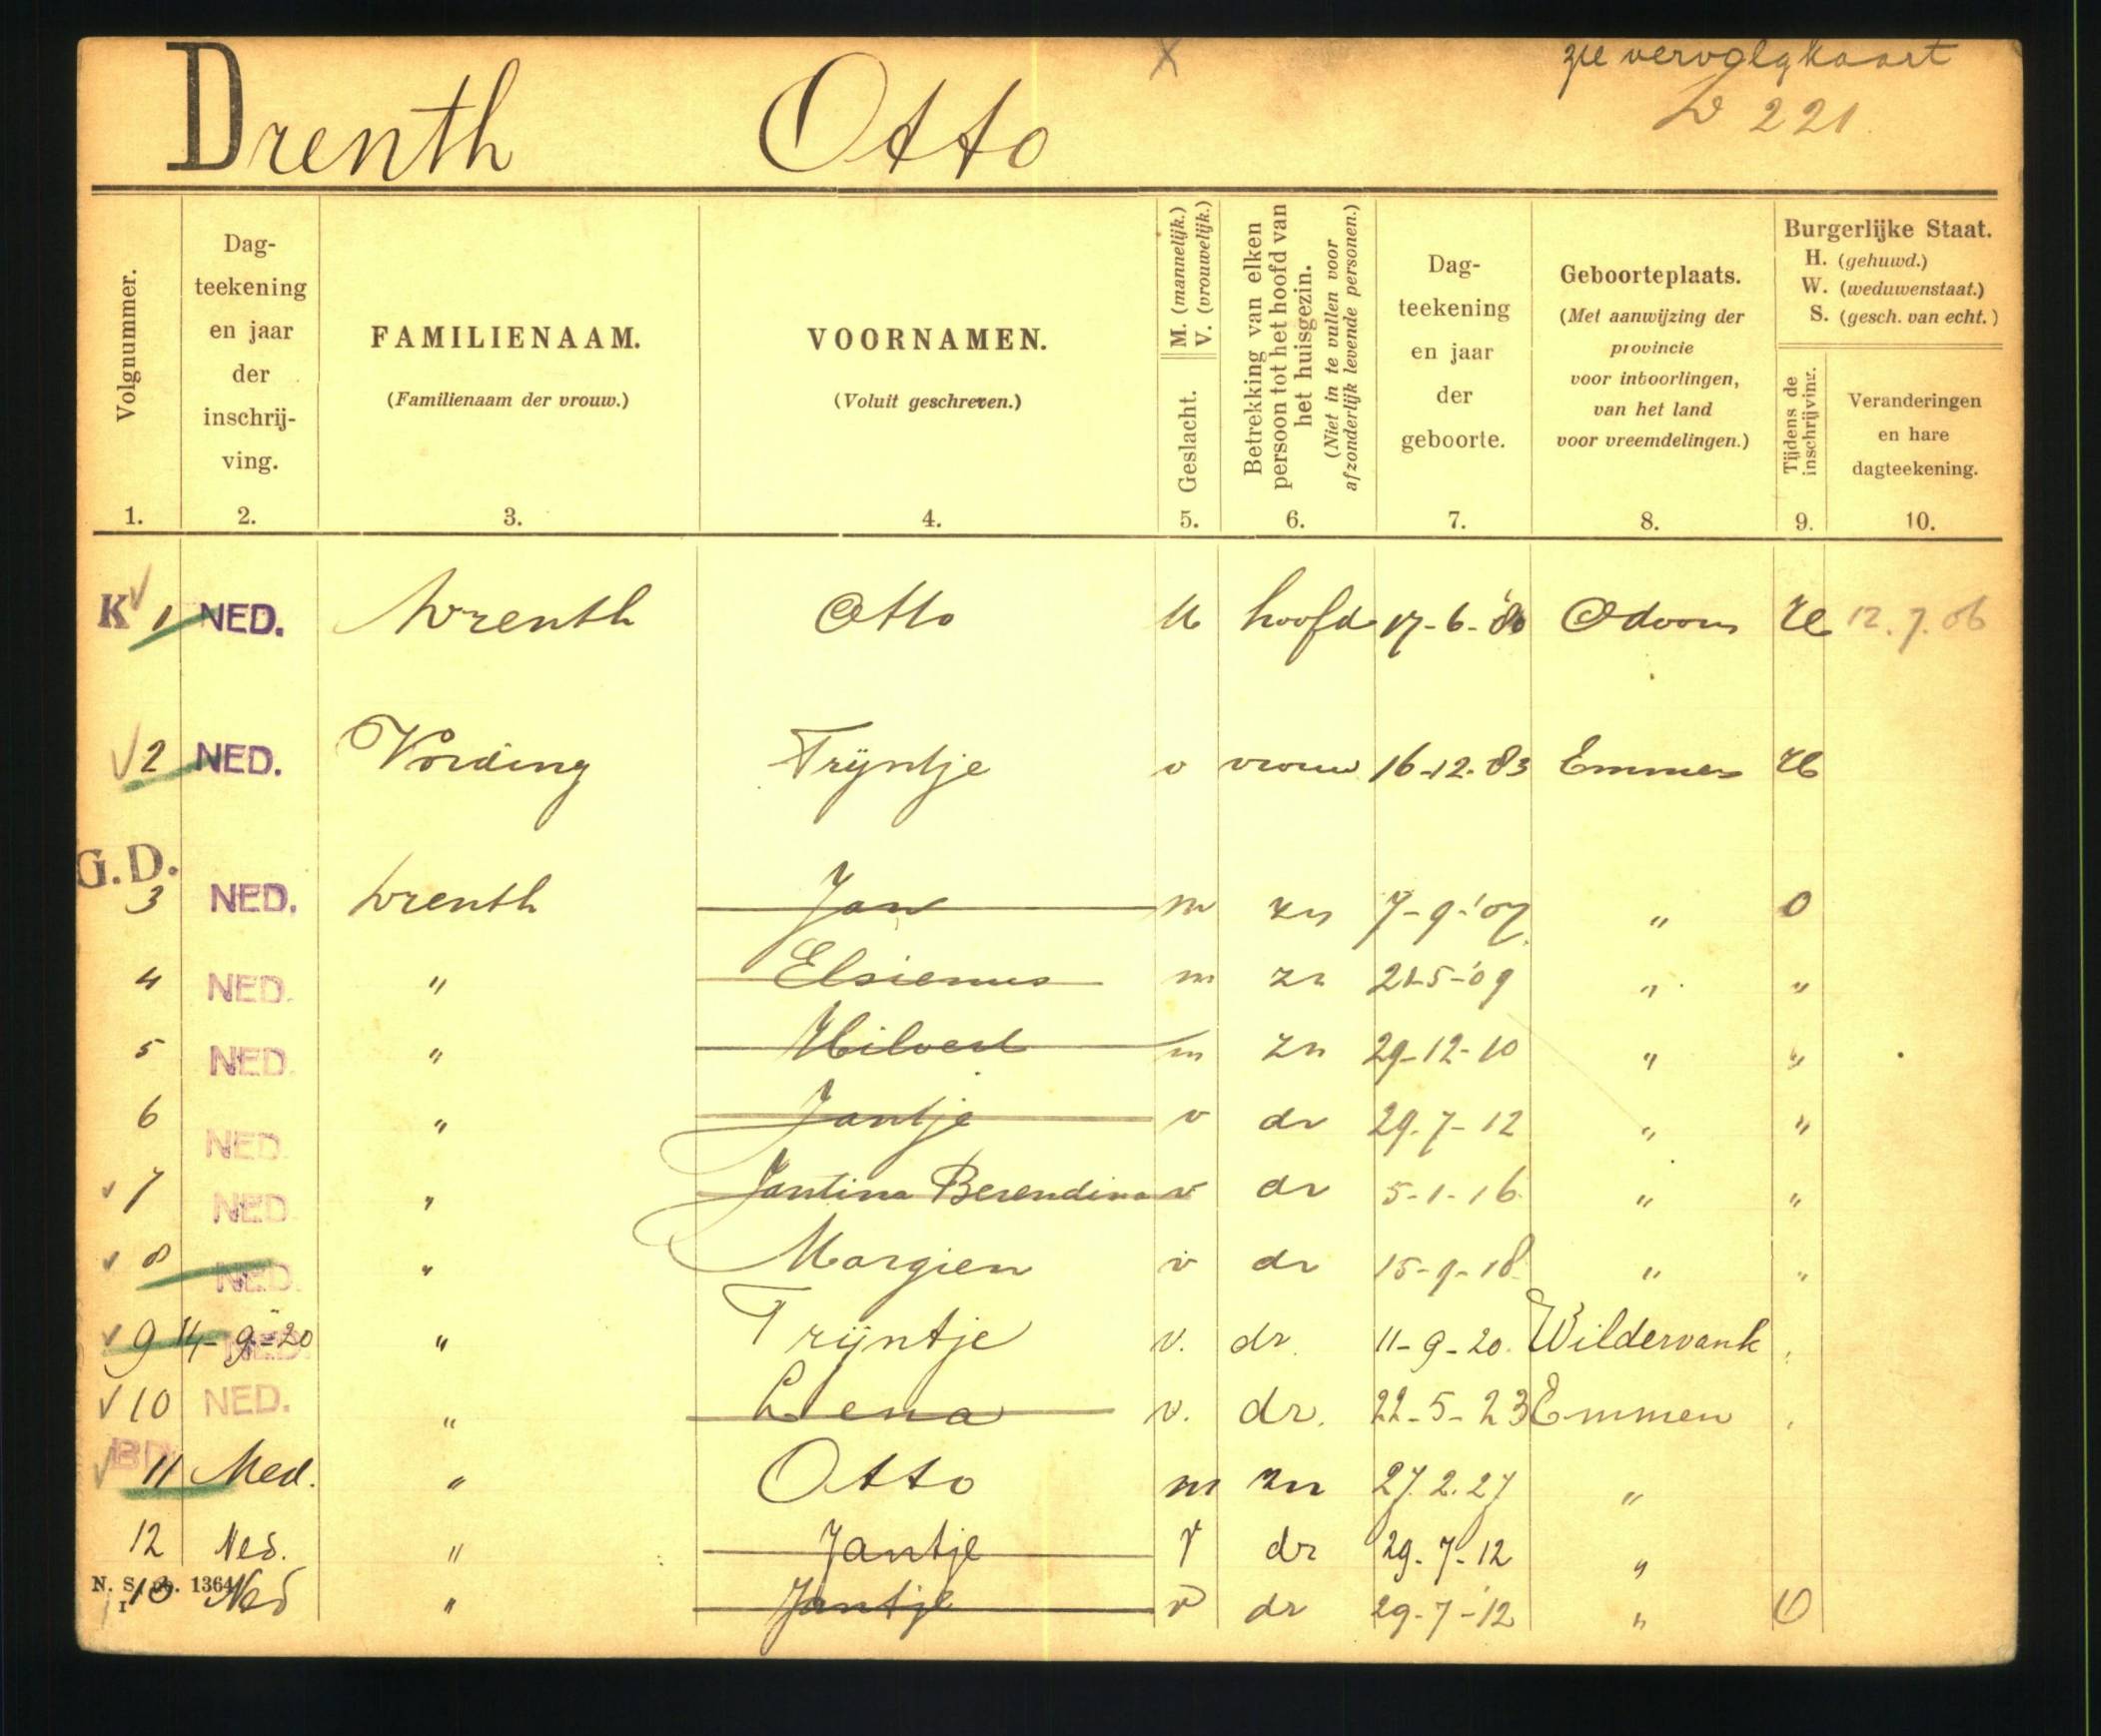 zie vervolgkaart
D 221.
Drenth Otto
Volgnummer.
1.
Dag-
teekening
en jaar
der
inschrij-
ving.
2.
FAMILIENAAM.
(Familienaam der vrouw.)
3.
VOORNAMEN.
(Voluit geschreven.)
4.
M. (mannelijk.)
V. (vrouwelijk.)
Geslacht.
5.
Betrekking van elken
persoon tot het hoofd van
het huisgezin.
(Niet in te vullen voor
afzonderlijk levende personen.)
6.
Dag-
teekening
en jaar
der
geboorte.
7.
Geboorteplaats.
(Met aanwijzing der
provincie
voor inboorlingen,
van het land
voor vreemdelingen.)
8.
Burgerlijke Staat.
H. (gehuwd.)
W. (weduwenstaat.)
S. (gesch. van echt.)
Tijdens de
inschrijving.
9.
Veranderingen
en hare
dagteekening.
10.
K 1 NED. Drenth Otto M hoofd 17-6-'80 Odoorn H 12.7.06
2 NED. Vording Trijntje v vrouw 16-12-83 Emmen H
G.D.
3 NED. Drenth Jan m zn 7-9-'07 " O
4 NED. " Elsienus m zn 21-5-'09 " "
5 NED. " Hilvert m zn 29-12-10 " "
6 NED. " Jantje v dr 29-7-12 " "
7 NED. " Jantina Berendina v dr 5-1-16 " "
8 NED. " Margien v dr 15-9-18 " "
9 14-9-20 NED. " Trijntje v. dr. 11-9-20. Wildervank "
10 NED. " Lena v. dr. 22-5-23 Emmen "
11 Ned. " Otto m zn 27.2.27 "
12 Ned. " Jantje v dr 29-7-12 "
13 Ned " Jantje v dr 29-7-'12 " O
N. S. no. 1364
I